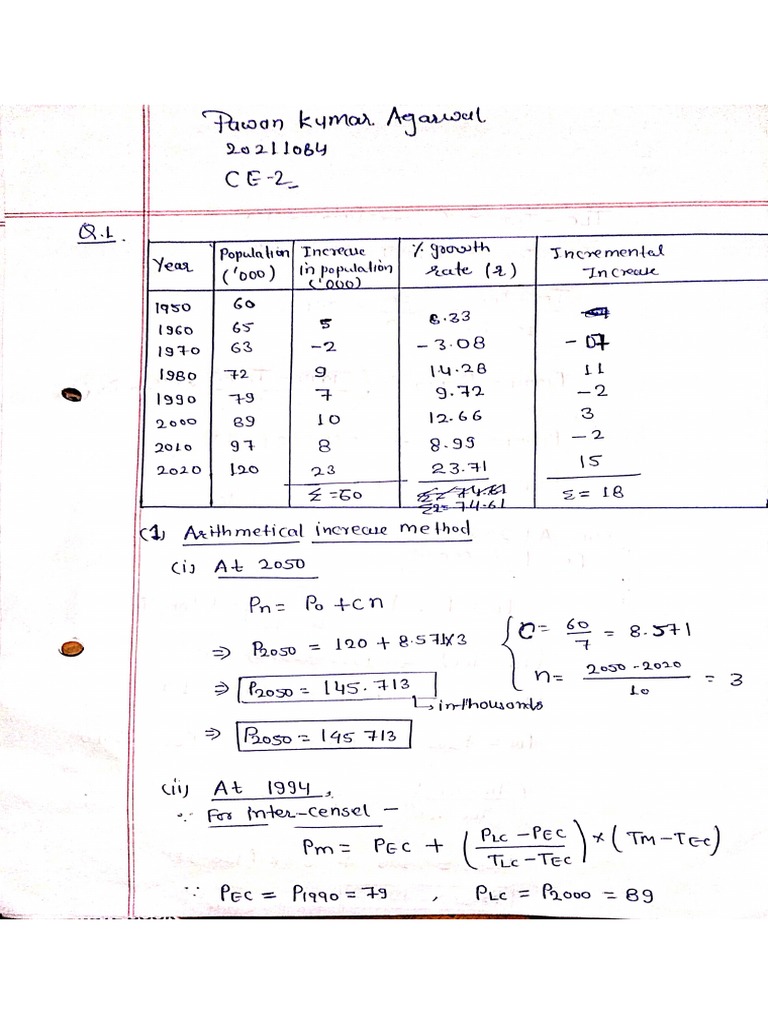 Pawan Kumar. Agarwal
20211084
CE-2
Q.1.
Year | Population ('000) | Increase in population ('000) | % growth rate (r) | Incremental Increase
1950 | 60
1960 | 65 | 5 | 8.33
1970 | 63 | -2 | -3.08 | -07
1980 | 72 | 9 | 14.28 | 11
1990 | 79 | 7 | 9.72 | -2
2000 | 89 | 10 | 12.66 | 3
2010 | 97 | 8 | 8.99 | -2
2020 | 120 | 23 | 23.71 | 15
Σ=60 | Σ= 74.61 | Σ= 18
Σr= 74.61
(1) Arithmetical increase method
(i) At 2050
Pn = P0 + Cn
⇒ P2050 = 120 + 8.571×3 { C = 60/7 = 8.571
⇒ P2050 = 145.713 n = (2050-2020)/10 = 3
↳ in thousands
⇒ P2050 = 145 713
(ii) At 1994,
∵ For inter-censel –
Pm = PEC + ((PLC - PEC)/(TLC - TEC)) × (TM - TEC)
∵ PEC = P1990 = 79 , PLC = P2000 = 89